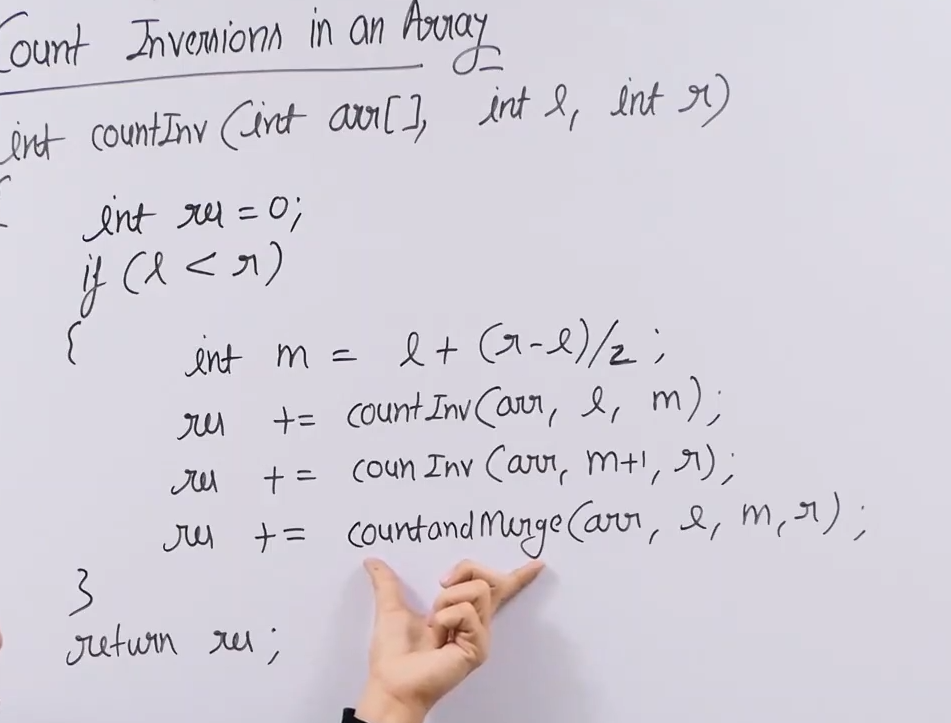 Count Inversions in an Array
int countInv (int arr[], int l, int r)
{
int res = 0;
if (l < r)
{
int m = l + (r-l)/2;
res += countInv(arr, l, m);
res += counInv (arr, m+1, r);
res += countandMerge(arr, l, m, r);
}
return res;